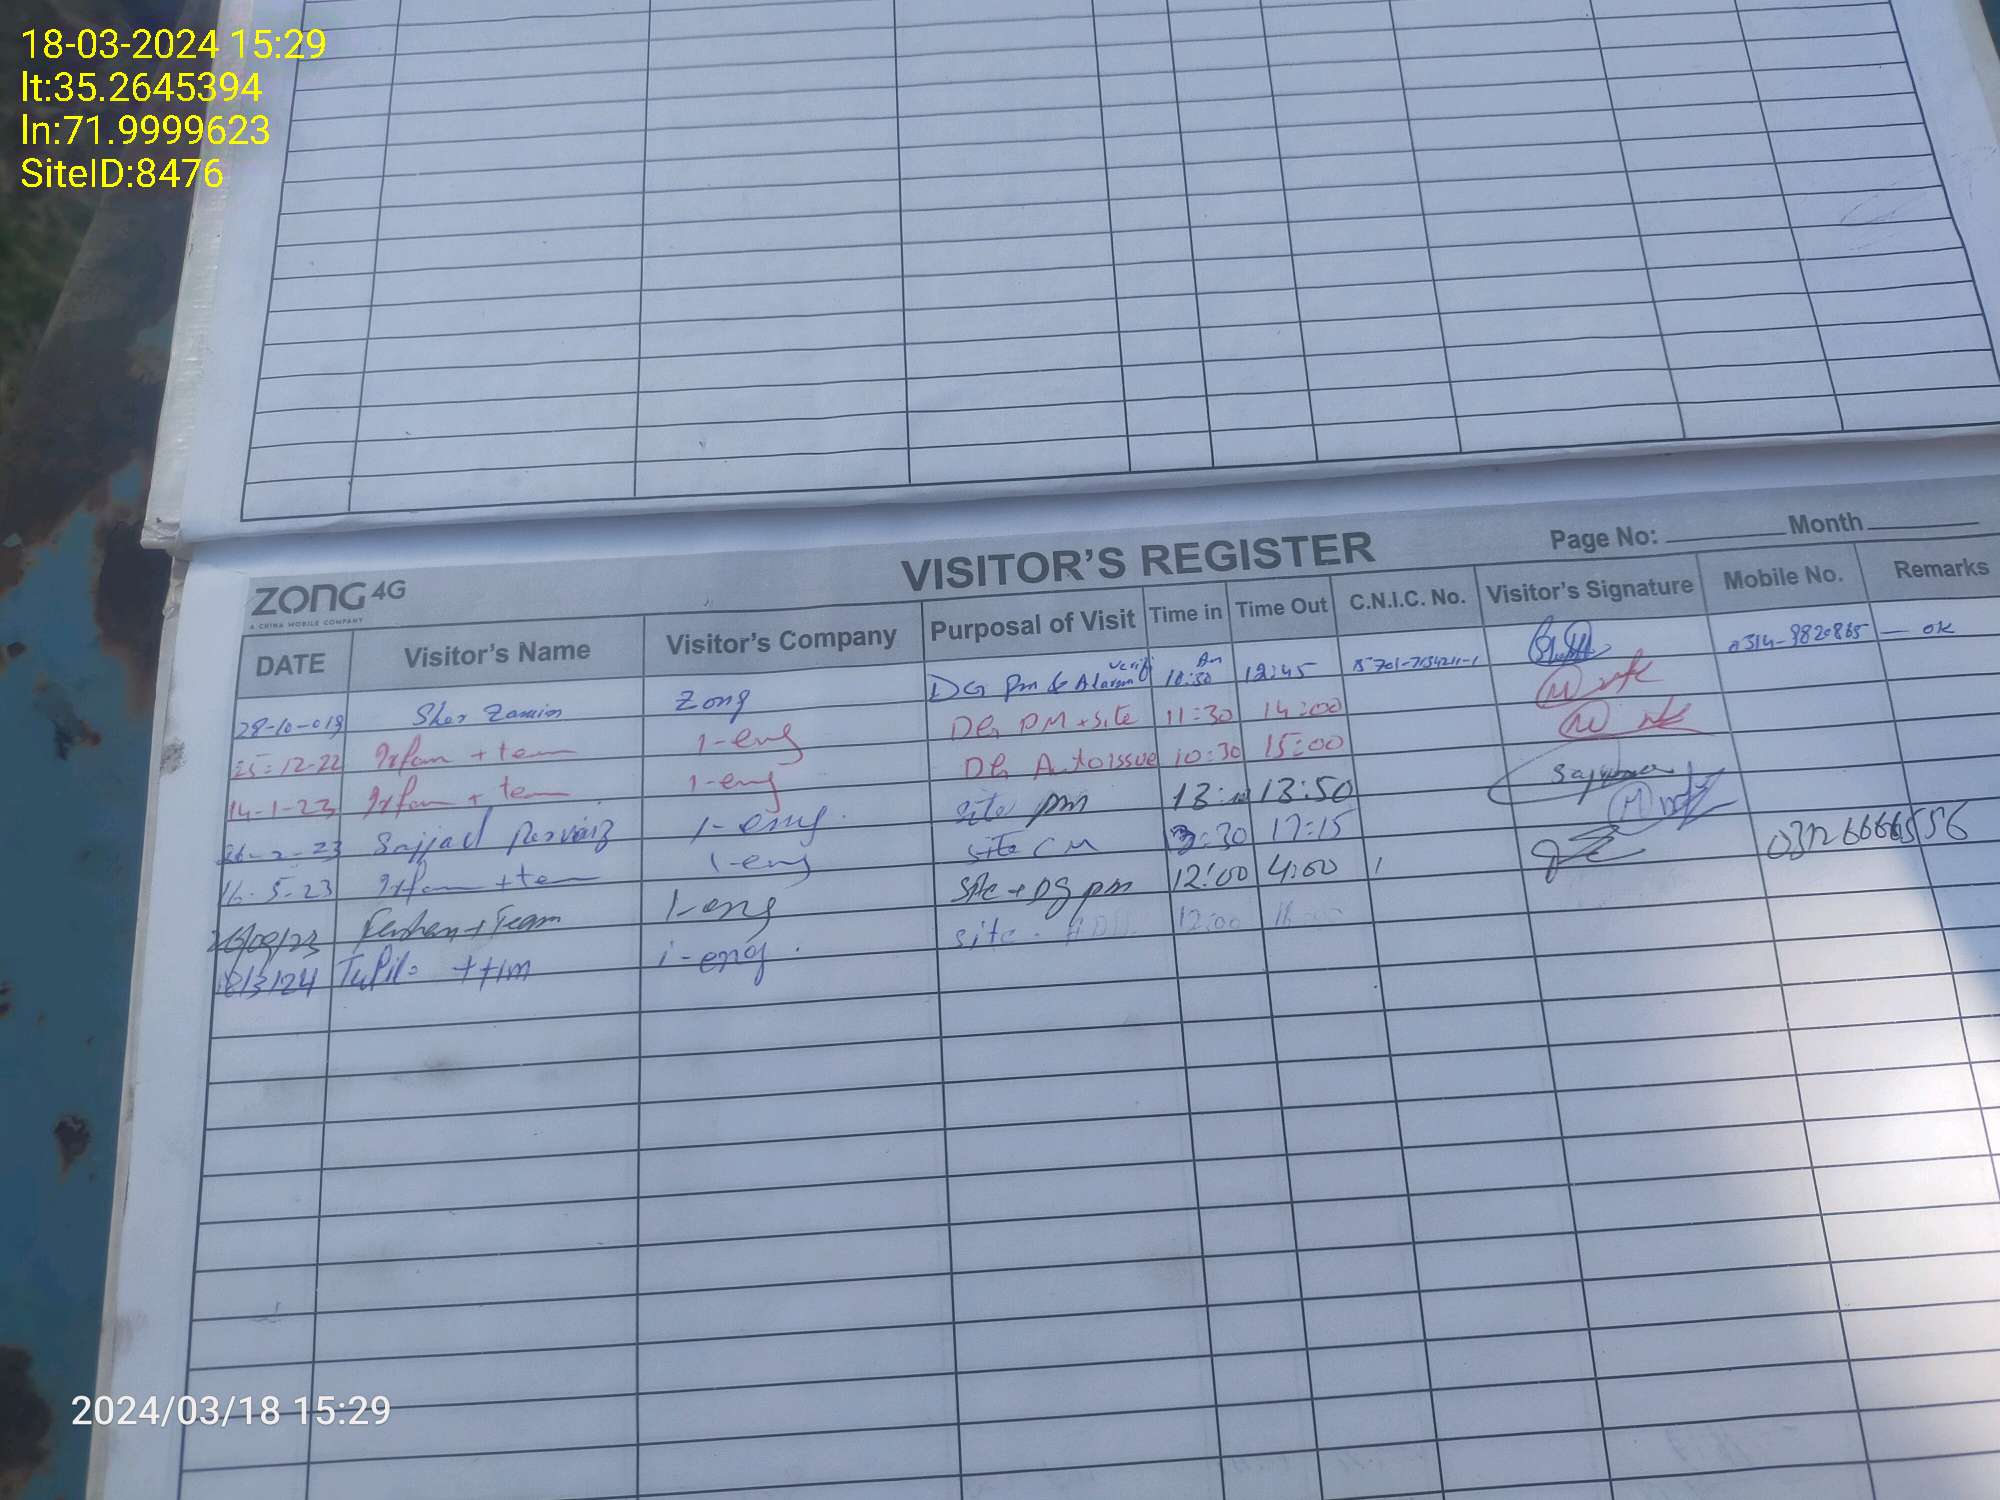 18-03-2024 15:29
lt:35.2645394
ln:71.9999623
SiteID:8476
ZONG 4G
A CHINA MOBILE COMPANY
VISITOR'S REGISTER
Page No: Month
DATE Visitor's Name Visitor's Company Purposal of Visit Time in Time Out C.N.I.C. No. Visitor's Signature Mobile No. Remarks
28-10-019 Sher Zamin Zong DG Pm & Alarm 10:30 12:45 0314-9820865 ok
25-12-22 Irfan + team I-eng DG PM + site 11:30 14:00
14-1-23 Irfan + team I-eng DG Auto issue 10:30 15:00
Sajjad Pervaiz I-eng. site pm 13:50
16-5-23 Irfan + team I-eng site CM 17:15
+ Team I-eng Site + DG pm 12:00 4:00 03126666556
18/3/24 i-eng. site 12:00
2024/03/18 15:29